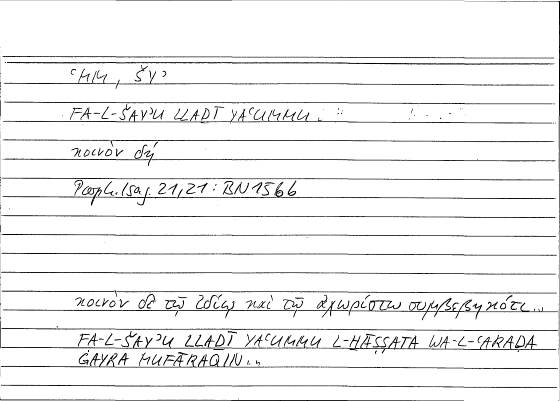 ʿMM, ŠYʾ
FA-L-ŠAYʾU LLAḎĪ YAʿUMMU.
κοινὸν δή
Porph. Isag. 21,21: BN 1566
κοινὸν δὲ τῷ ἰδίῳ καὶ τῷ ἀχωρίστῳ συμβεβηκότι...
FA-L-ŠAYʾU LLAḎĪ YAʿUMMU L-ḪĀṢṢATA WA-L-ʿARAḌA
ĠAYRA MUFĀRAQIN...